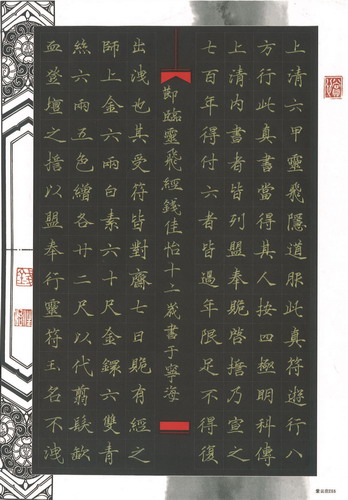 上清六甲靈飛隱道服此真符遊行八
方行此真書當得其人按四極明科傳
上清內書者皆列盟奉跪啓誓乃宣之
七百年得付六者皆過年限足不得復
節臨靈飛經錢佳怡十二歲書于寧海
出洩也其受符皆對齋七日跪有經之
師上金六兩白素六十尺金鐶六雙青
絲六兩五色繒各廿二尺以代翦髮歃
血登壇之誓以盟奉行靈符玉名不洩